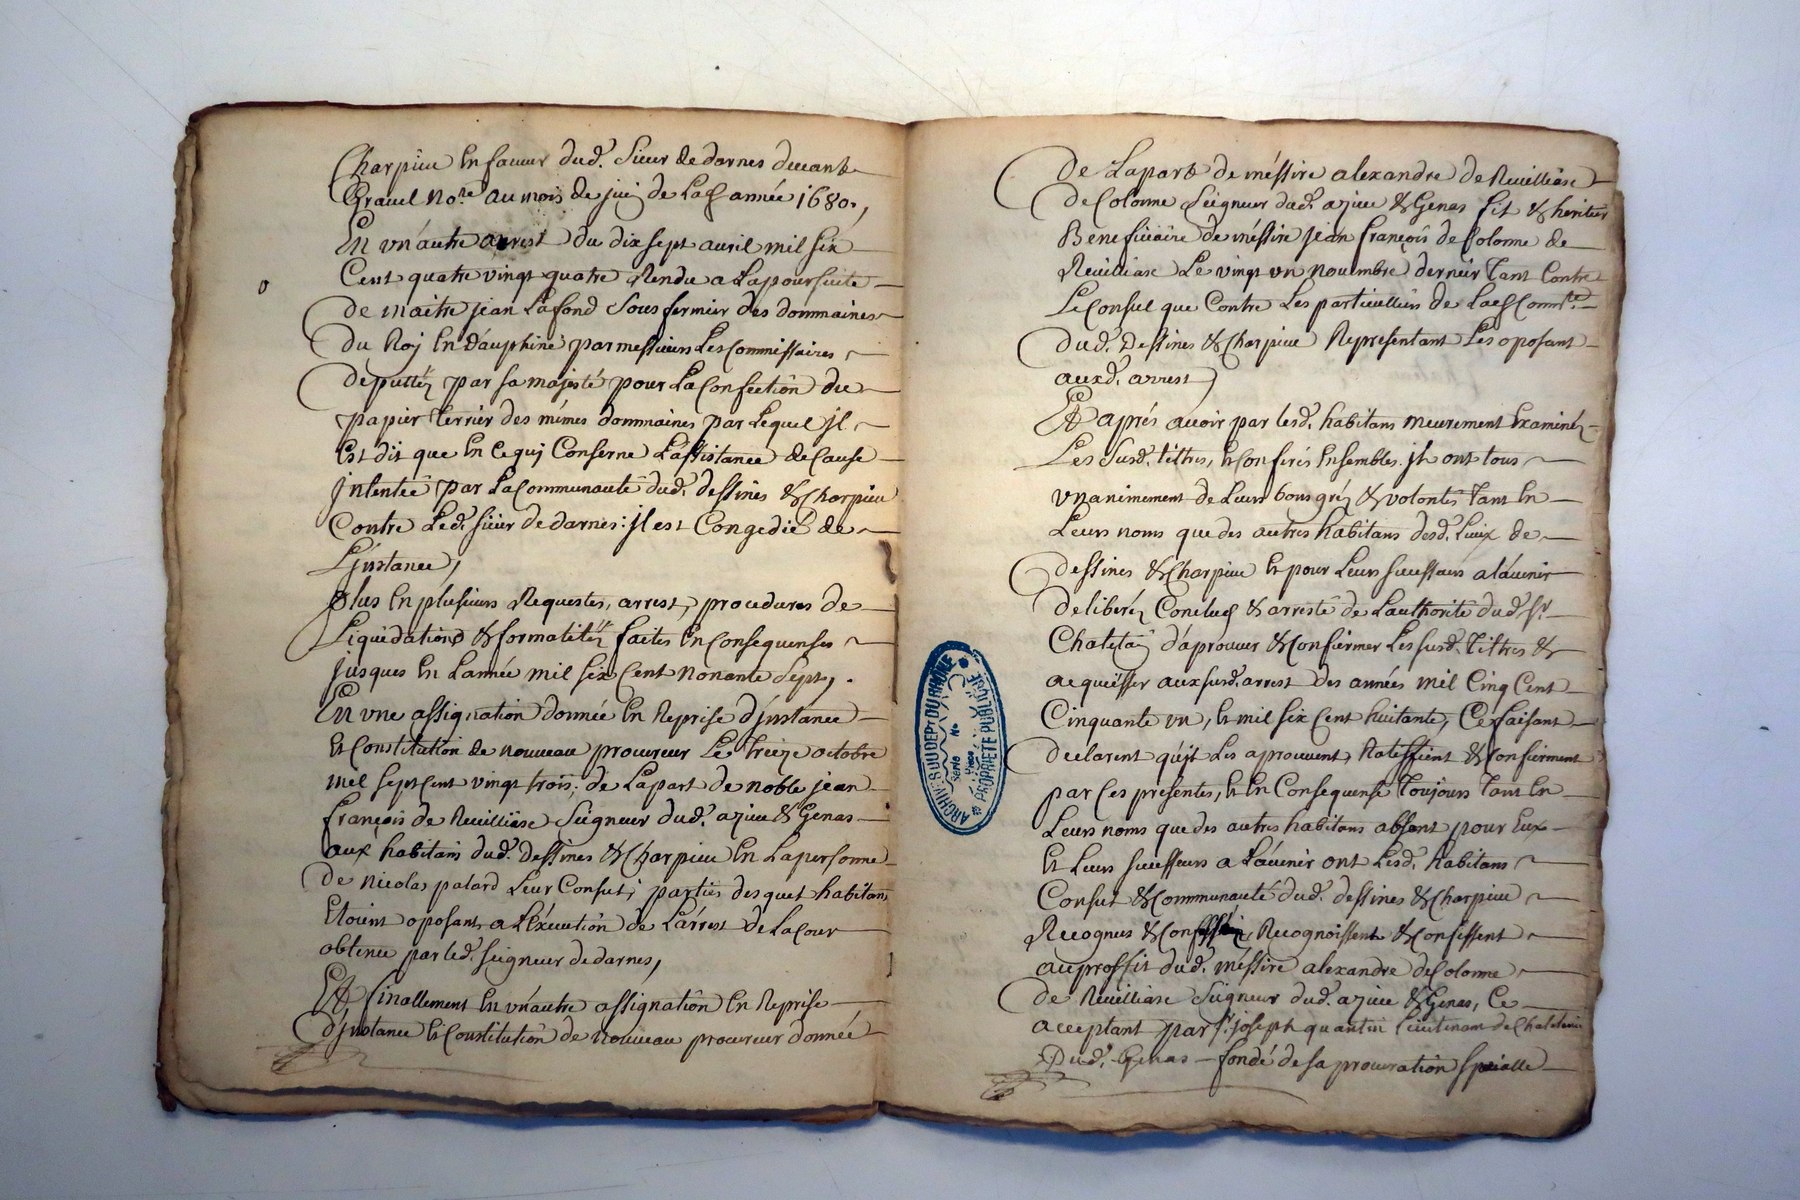 Charpieu En faveur dud. Sieur de darnes devant
Gravel No.re au mois de juin de Lad année 1680.,
En un autre arrest du dix sept avril mil six
Cent quatre vingt quatre Rendu a La poursuite
de maitre jean Lafond Sous fermier des dommaines
du Roy En dauphiné par messieurs Les Commissaires
deputtéz par sa majesté pour La Confection du
papier terrier des mémes dommaines par Lequel jl
Est dit que En Ce quj Conserne L'assistance de Cause
jntentée par La Communauté dud. dessines & Charpieu
Contre Led. sieur de darnes: jl est Congedié de
L'jnstance,
plus En plusieurs Requestes, arrest, procedures de
Liquidation & formalitéz faites En Consequenses
jusques En L'année mil six Cent nonante sept,.
En une assignation donnée En Reprise d'jnstance
Et Constitution de nouveau procureur Le treize octobre
mil sept Cent vingt trois, de La part de noble jean
françois de Reuilliase Seigneur dud. azieu & Genas
aux habitans dud. dessines & Charpieu En La personne
de nicolas patard Leur Consul; parties desquel habitans
Etoient oposants a L'éxécution de L'arrest de La Cour
obtenu par led. seigneur de darnes,
Et finallement En un autre assignation En Reprise
d'jnstance Et Constitution de nouveau procureur donnée
de La part de méssire alexandre de Reuilliase
de Colonne Seigneur dud. azieu & Genas fit & heritier
Beneficiaire de méssire jean françois de Colonne de
Reuilliase Le vingt un novembre dernier tant Contre
Le Consul que Contre Les particulliers de Lad Comm.té
dud. Dessines & Charpieu Representant Les oposant
auxd. arrest)
Et aprés avoir par lesd. habitans meurement Examinéz
Les Susd. tiltres, Et Conferés Ensembles jls ont tous
unanimement de Leurs bons gréz & volontés tant En
Leurs noms que des autres habitans desd. Lieux de
dessines & Charpieu Et pour Leurs successeurs a l'avenir
deliberéz Conclud & arresté de L'authorité dud. Sr.
Chatelain d'aprouver & Confiermer Les susd. tiltres &
acquiesser aux susd. arrest des années mil Cinq Cent
Cinquante un, Et mil six Cent huitante, Ce faisant
declarent qu'jls Les aprouvent, Ratiffient & Confierment
par Ces présentes, Et En Consequense toujours tant En
Leurs noms que des autres habitans absent pour Eux
Et Leurs successeurs a L'avenir ont Lesd. habitans
Consul & Communauté dud. dessines & Charpieu
Recognus & Recognoissent & Confessent
au proffit dud. méssire alexandre de Colonne
de Reuilliase Seigneur dud. azieu & Genas, Ce
acceptant par Sr. joseph quantin Lieutenant de Chatelain
Dud. Genas fondé de sa procuration specialle
ARCHIVES DU DEPT DU RHÔNE
Serie No
PROPRIETE PUBLIQUE